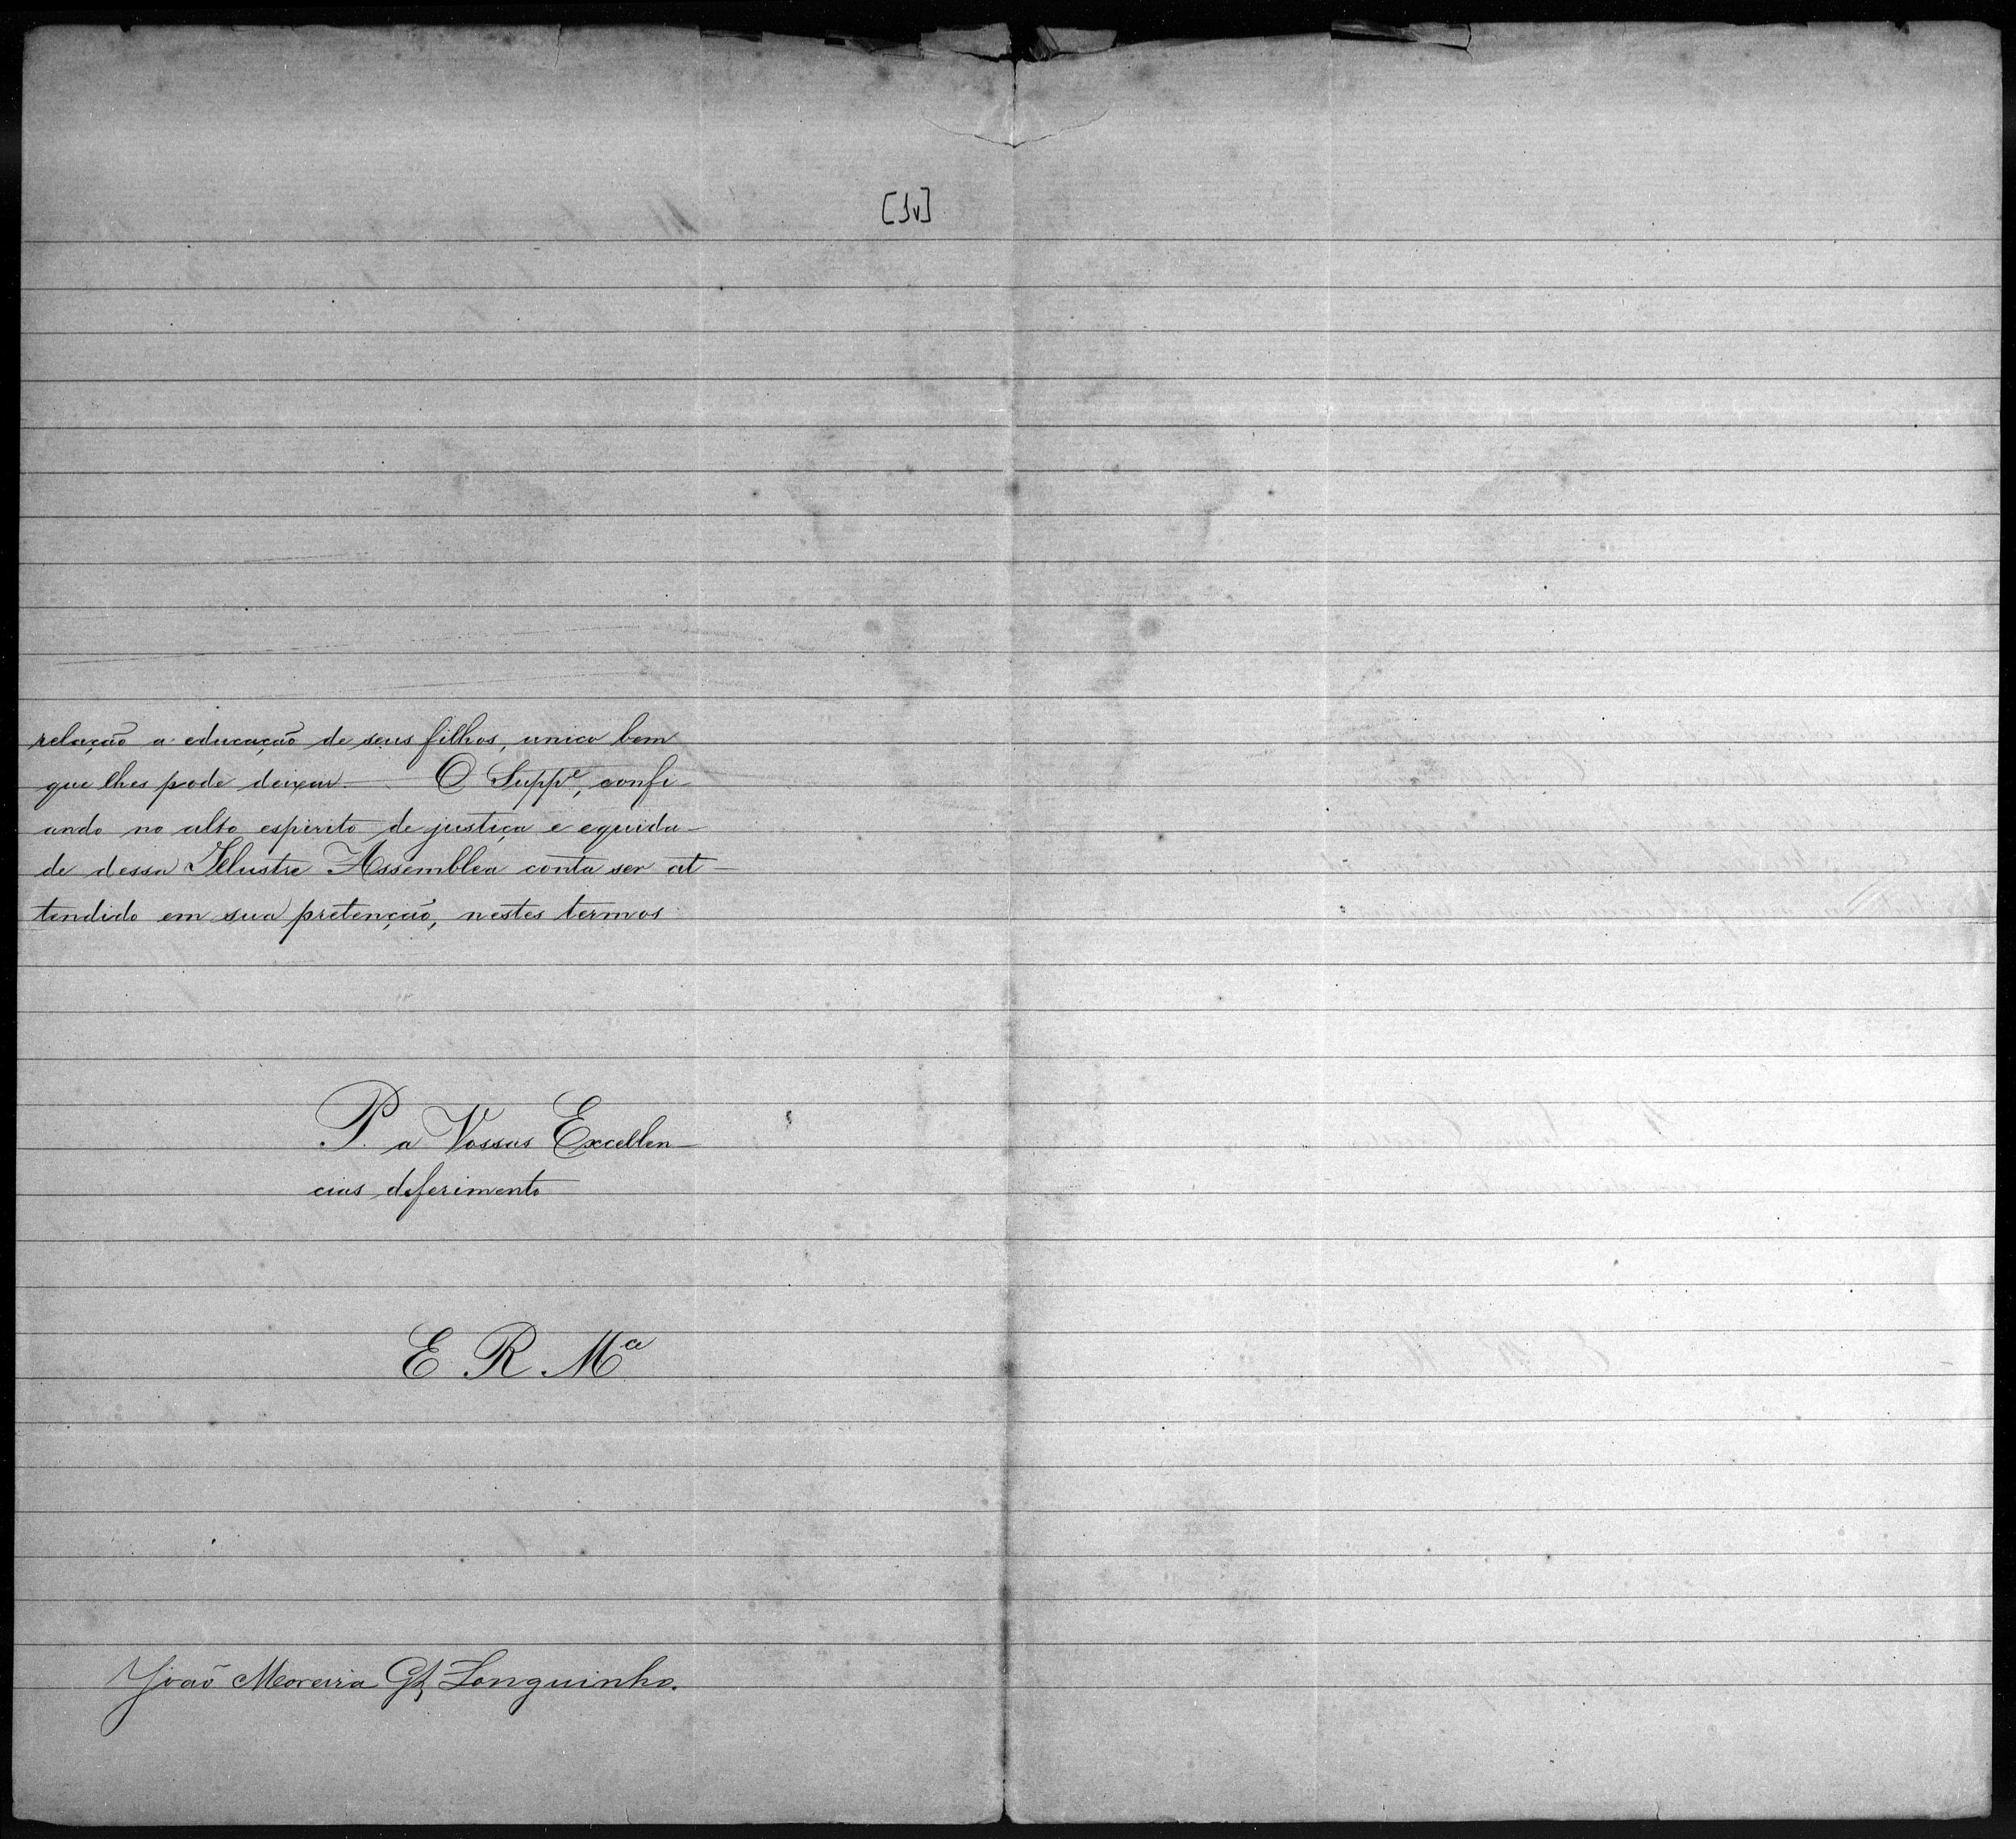 [1v]
relação a educação de seus filhos, unico bem
que lhes pode deixar. O Supp.e, confi-
ando no alto espirito de justiça e equida-
de dessa Illustre Assemblea conta ser at-
tendido em sua pretenção, nestes termos
P. a Vossas Excellen-
cias deferimento
E. R. M.ce
João Moreira Glz Longuinho.